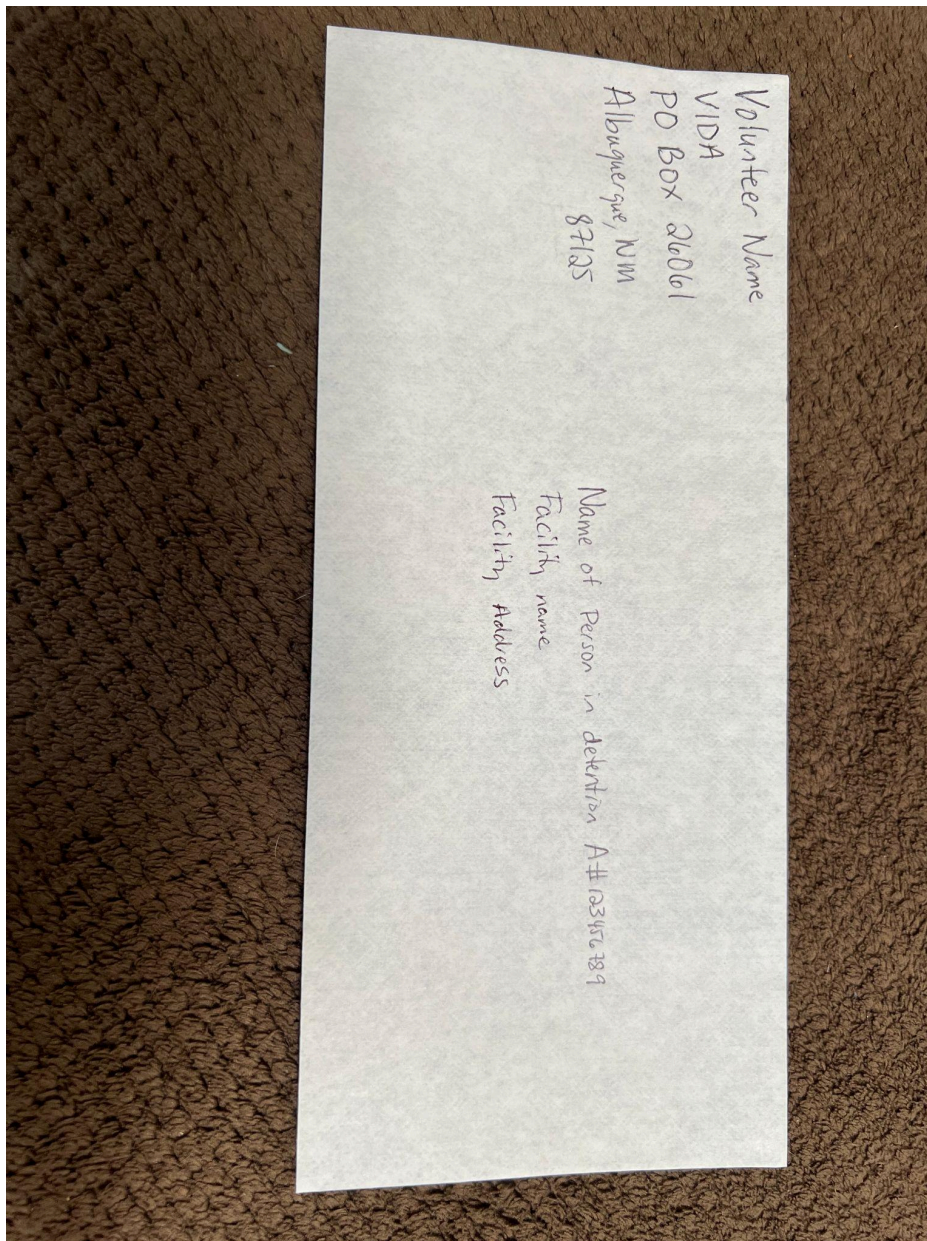 Volunteer Name
VIDA
PO BOX 26061
Albuquerque, NM
87125
Name of Person in detention A#123456789
Facility name
Facility Address